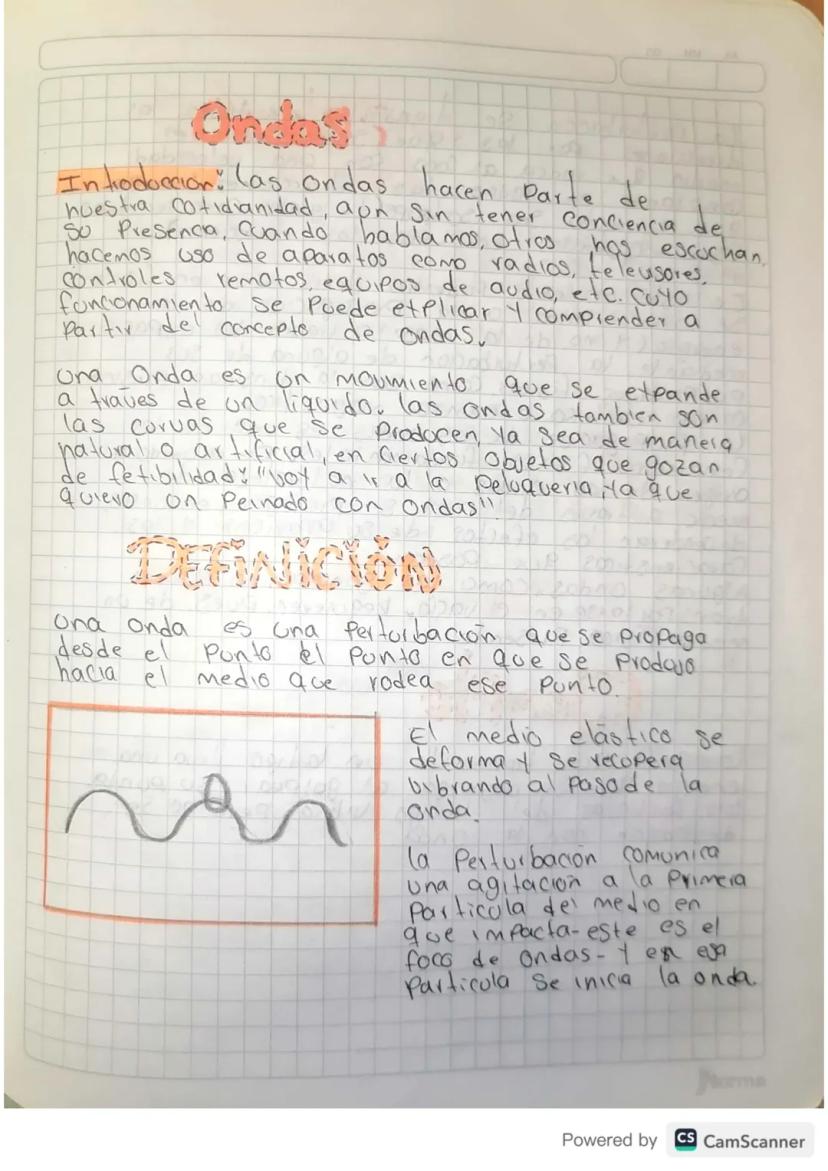 Ondas
Introduccion: las ondas hacen parte de
nuestra cotidianidad, aun sin tener conciencia de
su presencia. Cuando hablamos, otros nos escuchan,
hacemos uso de aparatos como radios, televisores,
controles remotos, equipos de audio, etc. cuyo
funcionamiento se puede explicar y comprender a
partir del concepto de ondas.
Una Onda es un movimiento que se expande
a través de un liquido. las ondas tambien son
las curvas que se producen, ya sea de manera
natural o artificial, en ciertos objetos que gozan
de fexibilidad: "voy a ir a la peluqueria, ya que
quiero un peinado con ondas"
DEFiNiCiÓN
Una onda es una perturbación que se propaga
desde el punto el punto en que se produjo
hacia el medio que rodea ese punto.
El medio elástico se
deforma y se recupera
vibrando al paso de la
onda.
la perturbación comunica
una agitación a la primera
particula del medio en
que impacta-este es el
foco de ondas- y en esa
particula se inicia la onda.
Norma
Powered by CS CamScanner